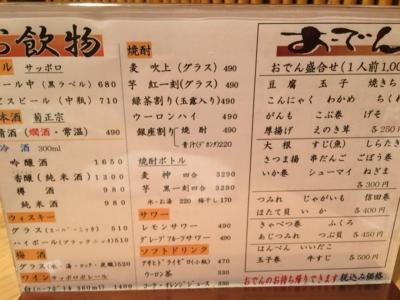 お飲物
ル サッポロ
ール中(黒ラベル) 680
ビスビール(中瓶) 710
本酒 菊正宗
清酒(燗酒・常温) 490
冷酒 300ml
吟醸酒 1650
香醸(純米酒) 1300
樽酒 980
純米酒 980
ウィスキー
グラス(スーパーニッカ) 690
ハイボール(ブラックニッカ) 490
梅酒
グラス(水・湯・ロック・炭酸) 550
ワイン サッポロポレール
焼酎
麦 吹上(グラス) 490
芋 紅一刻(グラス) 490
緑茶割り(玉露入り) 490
ウーロンハイ 490
銀座割り 焼酎 490
青汁(ゲンカ) 220
焼酎ボトル
麦 神 四合 3290
芋 黒一刻 四合 3290
氷・お湯 220 梅干し 170
サワー
レモンサワー 490
グレープフルーツサワー 490
ソフトドリンク
アサヒドライゼロ(小瓶) 490
ウーロン茶 300
コーラ・オレンジジュース 300
おでん
おでん盛合せ(1人前1,00
豆腐 玉子 焼きち
こんにゃく わかめ ちくわ
がんも こぶ巻 げそ
厚揚げ えのき茸 各250円
大根 すじ(魚) しらたき
さつま揚 串だんご ごぼう巻
いか巻 シューマイ ねぎま
各300円
つみれ じゃがいも 信田巻
ほたて貝 いか 各400円
きゃべつ巻 ふくろ
あじつみれ つぶ貝 各450円
はんぺん いいだこ
玉子巻 牛すじ 各500円
おでんのお持ち帰りできます 税込み価格